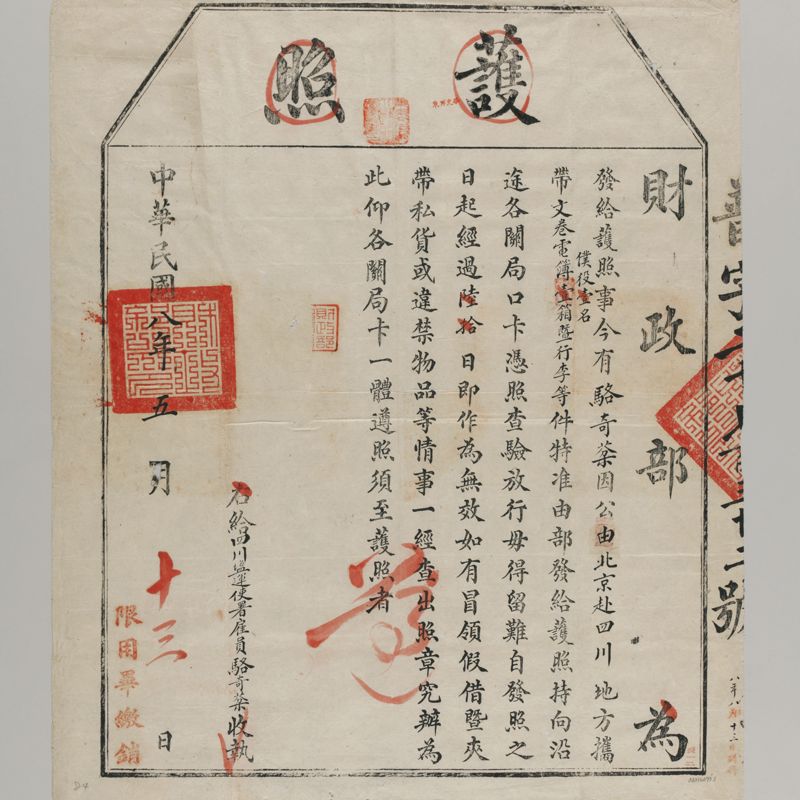 護照
財政部為
發給護照事今有駱奇蘂因公由北京赴四川地方攜
僕役壹名
帶文卷電簿壹箱暨行李等件特准由部發給護照持向沿
途各關局口卡憑照查驗放行毋得留難自發照之
日起經過陸拾日即作為無效如有冒領假借暨夾
帶私貨或違禁物品等情事一經查出照章究辦為
此仰各關局卡一體遵照須至護照者
遵
財政部
右給四川鹽運使署雇員駱奇蘂收執
中華民國八年五月十三日
限回畢繳銷